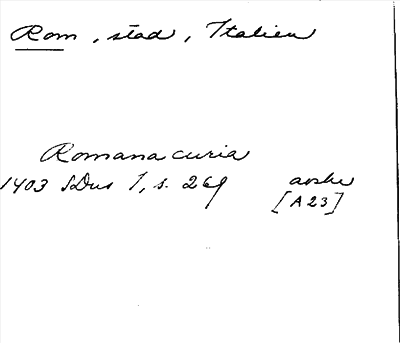 Rom, stad, Italien
Romana curia
1403 SDns 1, s. 269 avskr
[A23]